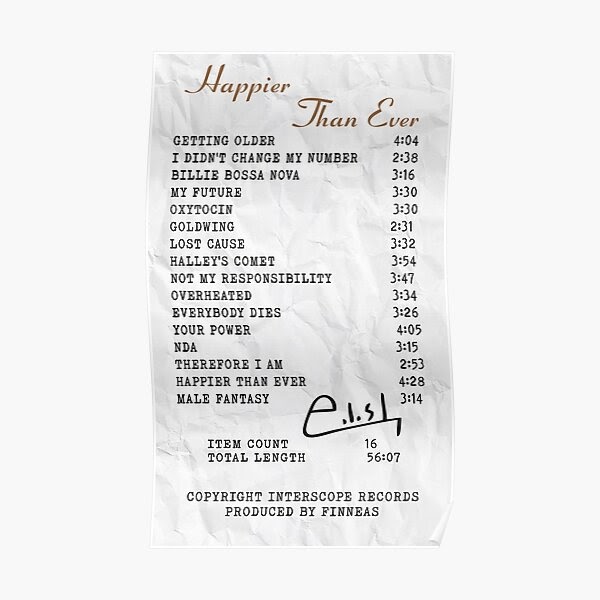 Happier
Than Ever
GETTING OLDER 4:04
I DIDN'T CHANGE MY NUMBER 2:38
BILLIE BOSSA NOVA 3:16
MY FUTURE 3:30
OXYTOCIN 3:30
GOLDWING 2:31
LOST CAUSE 3:32
HALLEY'S COMET 3:54
NOT MY RESPONSIBILITY 3:47
OVERHEATED 3:34
EVERYBODY DIES 3:26
YOUR POWER 4:05
NDA 3:15
THEREFORE I AM 2:53
HAPPIER THAN EVER 4:28
MALE FANTASY 3:14
ITEM COUNT 16
TOTAL LENGTH 56:07
COPYRIGHT INTERSCOPE RECORDS
PRODUCED BY FINNEAS